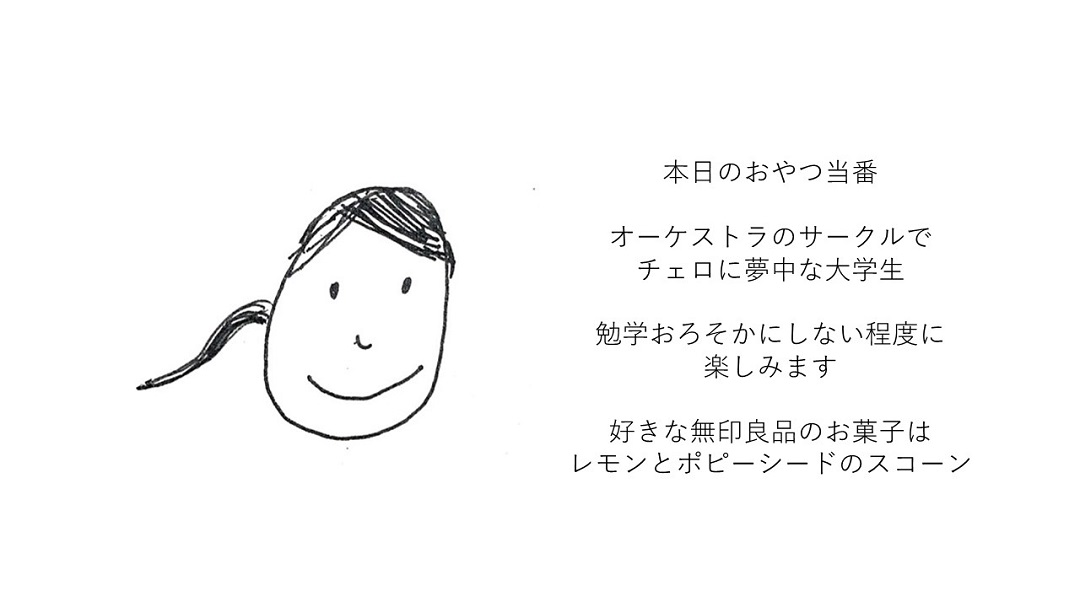 本日のおやつ当番
オーケストラのサークルで
チェロに夢中な大学生
勉学おろそかにしない程度に
楽しみます
好きな無印良品のお菓子は
レモンとポピーシードのスコーン